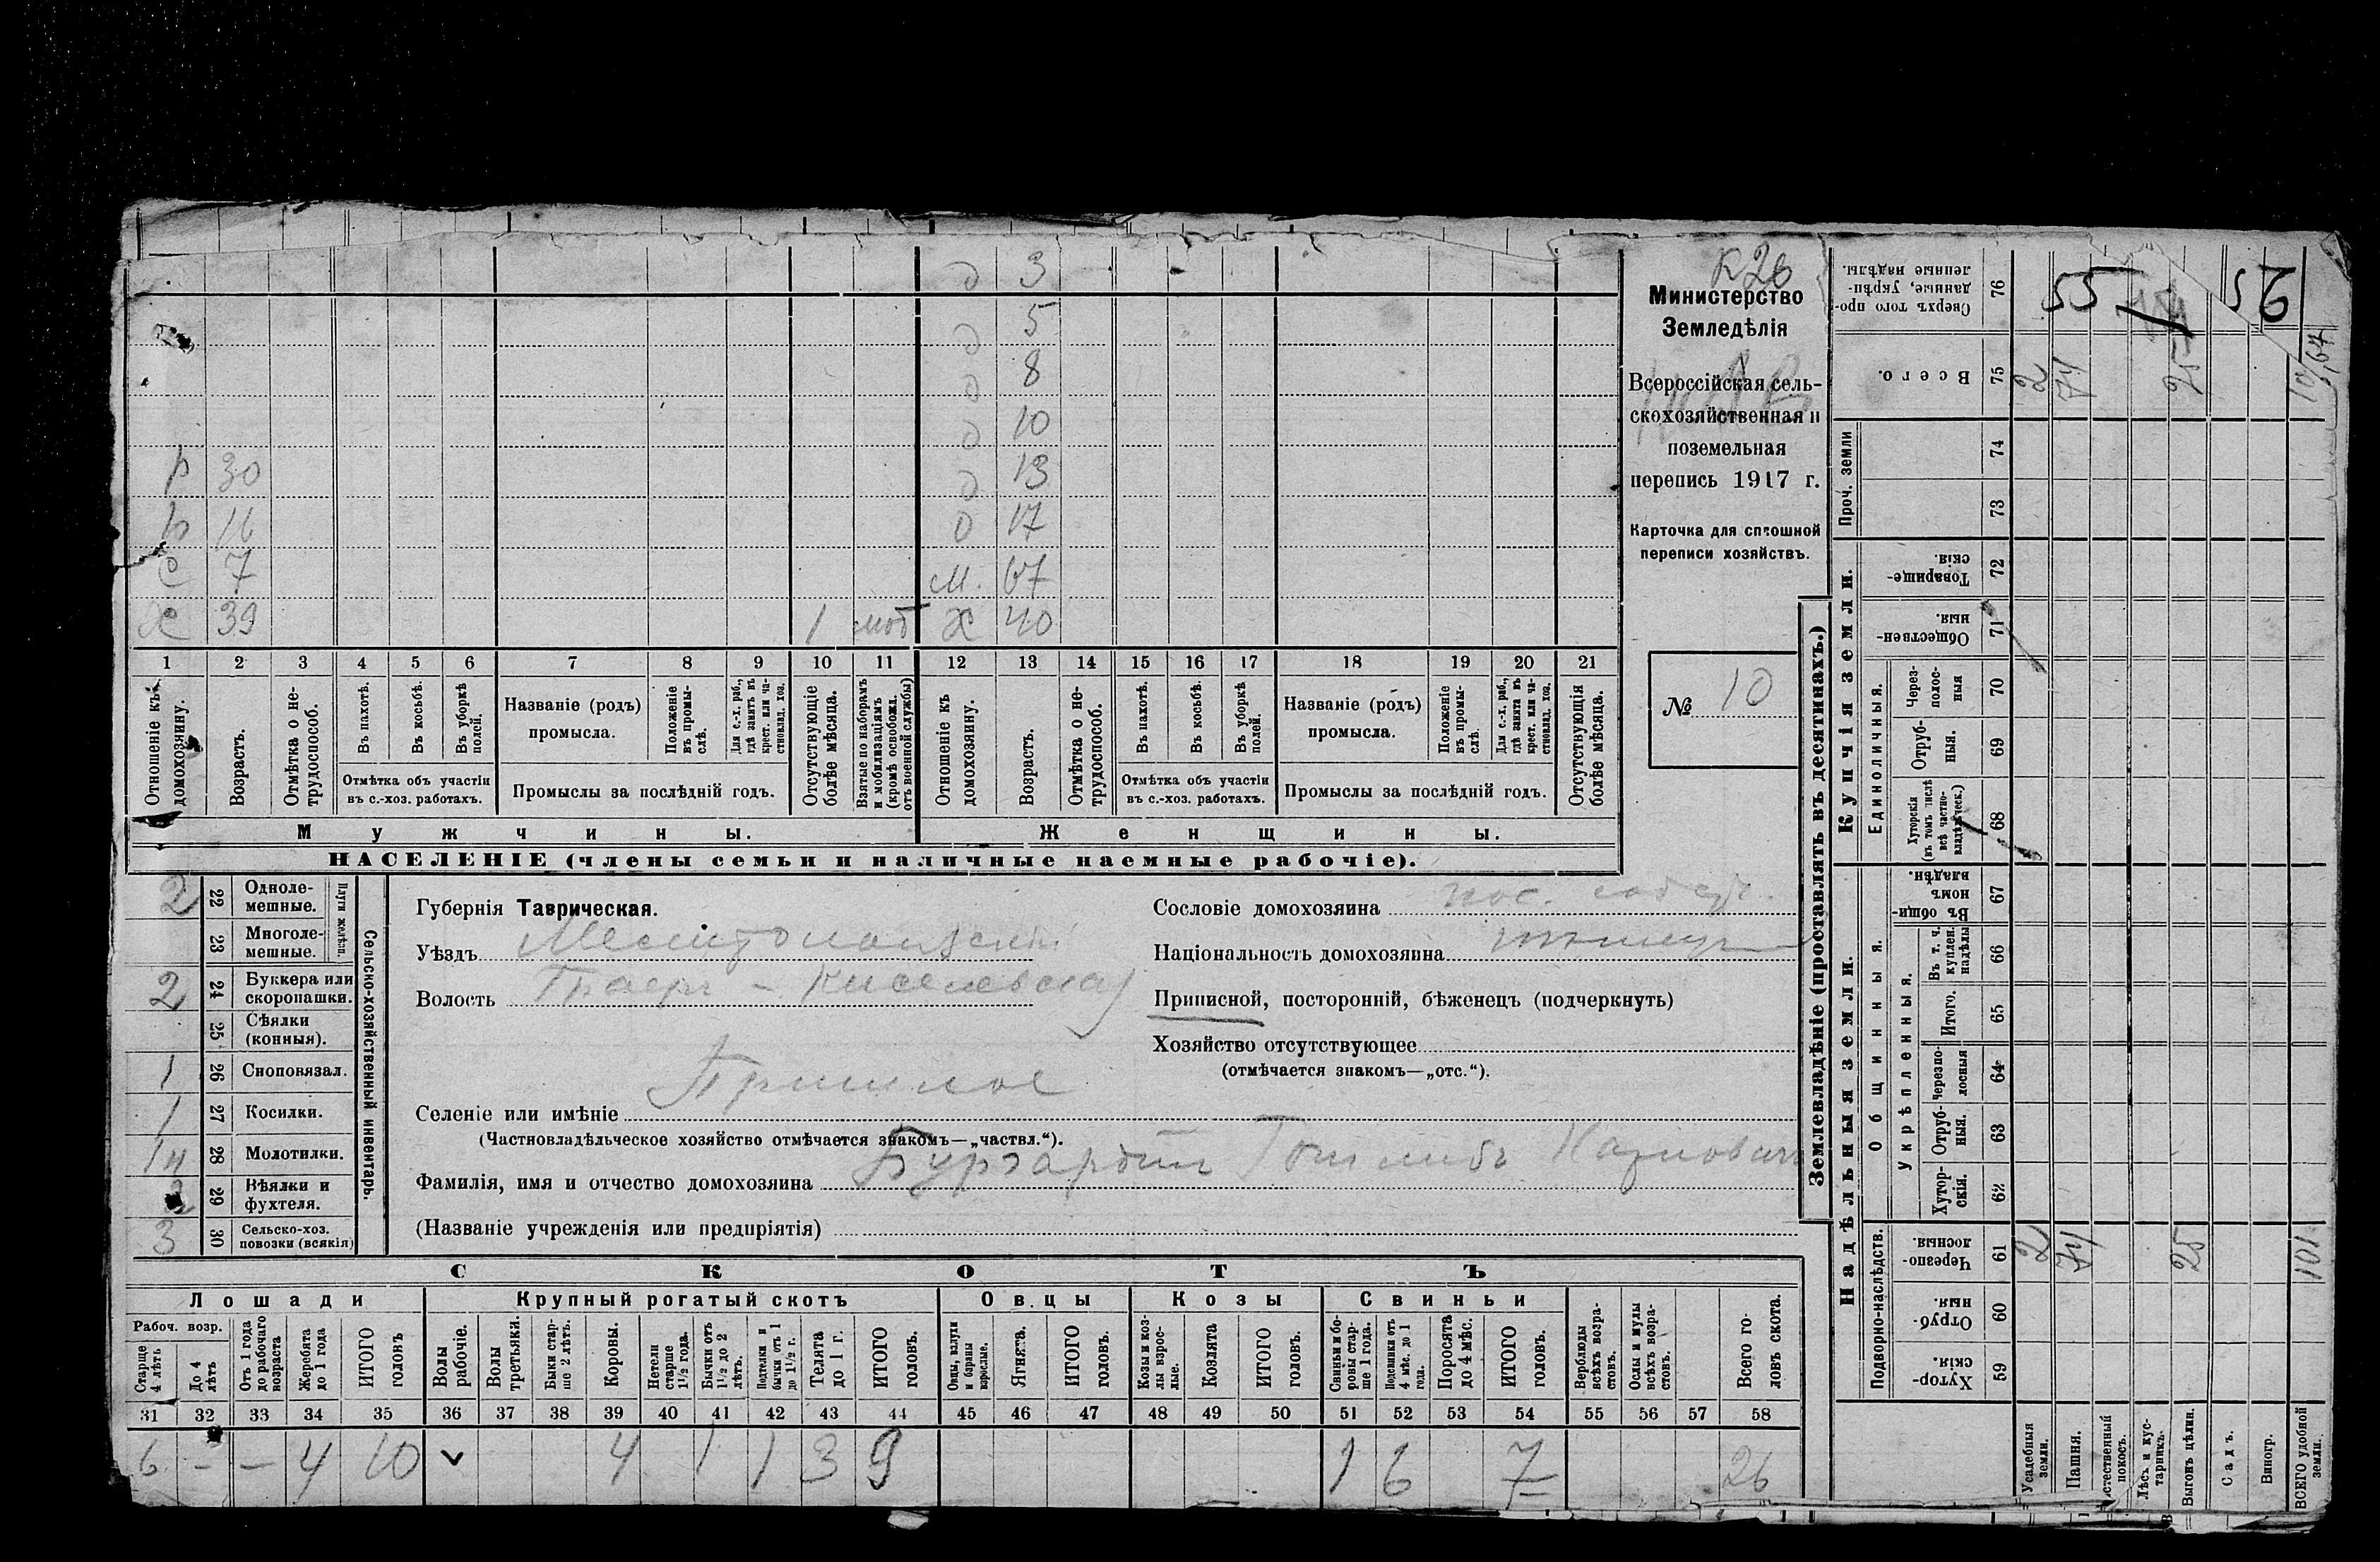 К26
Министерство
Земледѣлія
Всероссійская сель-
скохозяйственная и
поземельная
перепись 1917 г.
Карточка для сплошной
переписи хозяйствъ.
№ 10
д 3
д 5
д 8
д 10
р 30 д 13
р 16 д 17
с 7 м. 67
х 39 1 моб х 40
1 2 3 4 5 6 7 8 9 10 11 12 13 14 15 16 17 18 19 20 21
Отношеніе къ домохозяину.
Возрастъ.
Отмѣтка о не-трудоспособ.
Въ пахотѣ.
Въ косьбѣ.
Въ уборкѣ полей.
Отмѣтка объ участіи
въ с.-хоз. работахъ.
Названіе (родъ)
промысла.
Положеніе въ промы-слѣ.
Для с.-х. раб., гдѣ занятъ въ крест. или ча-стновлад. хоз.
Промыслы за послѣдній годъ.
Отсутствующіе болѣе мѣсяца.
Взятые по наборамъ и мобилизаціямъ (кромѣ освобожд. отъ военной службы)
Отношеніе къ домохозяину.
Возрастъ.
Отмѣтка о не-трудоспособ.
Въ пахотѣ.
Въ косьбѣ.
Въ уборкѣ полей.
Отмѣтка объ участіи
въ с.-хоз. работахъ.
Названіе (родъ)
промысла.
Положеніе въ промы-слѣ.
Для с.-х. раб., гдѣ занята въ крест. или ча-стновлад. хоз.
Промыслы за послѣдній годъ.
Отсутствующія болѣе мѣсяца.
Мужчины.
Женщины.
НАСЕЛЕНІЕ (члены семьи и наличные наемные рабочіе).
Сельско-хозяйственный инвентарь.
Плуги желѣзн.
2 22 Одноле-мешные.
23 Многоле-мешные.
2 24 Буккера или скоропашки.
25 Сѣялки (конныя).
1 26 Сноповязал.
1 27 Косилки.
1 н 28 Молотилки.
29 Вѣялки и фухтеля.
3 30 Сельско-хоз. повозки (всякія)
Губернія Таврическая.
Уѣздъ Мелитопольскій
Волость
Киселевская
Селеніе или имѣніе Пришиб
(Частновладѣльческое хозяйство отмѣчается знакомъ—„частвл.“).
Фамилія, имя и отчество домохозяина Бургардтъ Готлибъ
(Названіе учрежденія или предпріятія)
Сословіе домохозяина пос. собств.
Національность домохозяина
Приписной, посторонній, бѣженецъ (подчеркнуть)
Хозяйство отсутствующее
(отмѣчается знакомъ—„отс.“).
СКОТЪ
Лошади
Крупный рогатый скотъ
Овцы
Козы
Свиньи
Рабоч. возр.
Старше 4 лѣтъ
До 4 лѣтъ
Отъ 1 года до рабочаго возраста
Жеребята до 1 года
ИТОГО головъ
Волы рабочіе.
Волы третьяки.
Быки стар-ше 2 лѣтъ.
Коровы.
Нетели старше 1½ года.
Бычки отъ 1½ до 2 лѣтъ.
Подтелки и бычки отъ 1 до 1½ г.
Телята до 1 г.
ИТОГО головъ.
Овцы, валухи и бараны взрослые.
Ягнята.
ИТОГО головъ.
Козы и коз-лы взрос-лые.
Козлята
ИТОГО головъ.
Свиньи и бо-ровы стар-ше 1 года.
Подсвинки отъ 4 мѣс. до 1 года.
Поросята до 4 мѣс.
ИТОГО головъ.
Верблюды всѣхъ возра-стовъ.
Ослы и мулы всѣхъ возра-стовъ.
Всего го-ловъ скота.
31 32 33 34 35 36 37 38 39 40 41 42 43 44 45 46 47 48 49 50 51 52 53 54 55 56 57 58
6 - - 4 10 4 1 1 3 9 1 6 7 26
Землевладѣніе (проставлять въ десятинахъ.)
Надѣльныя земли.
Купчія земли.
Проч. земли
Подворно-наслѣдств.
Общинныя.
Укрѣпленныя.
Единоличныя.
Сверхъ того про-данные, укрѣп-ленные надѣлы. 76
Всего. 75
74
73
Товарище-скія 72
Обществен-ныя. 71
Через-полос-ныя 70
Отруб-ныя. 69
Хуторскія (въ томъ числѣ всѣ частно-владѣльческ.) 68
Въ общи-номъ владѣн. 67
Въ т. ч. куплен. надѣлы 66
Итого. 65
Черезпо-лосныя 64
Отруб-ныя. 63
Хутор-скія. 62
Черезпо-лосныя 61
Отруб-ныя. 60
Хутор-скія. 59
Усадебныя земли.
Пашня.
стественный покосъ.
Лѣсъ и кус-тарникъ.
Выгонъ цѣлин.
Садъ.
Виногр.
ВСЕГО удобной земли.
2 74 25
2 74 25 101
55